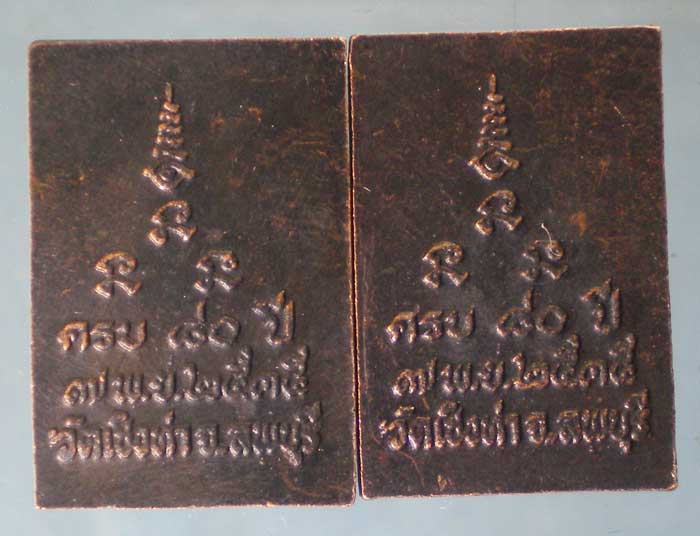 ครบ ๘๐ ปี
๗ พ.ย. ๒๕๓๕
วัดเชิงท่า จ.ลพบุรี
ครบ ๘๐ ปี
๗ พ.ย. ๒๕๓๕
วัดเชิงท่า จ.ลพบุรี